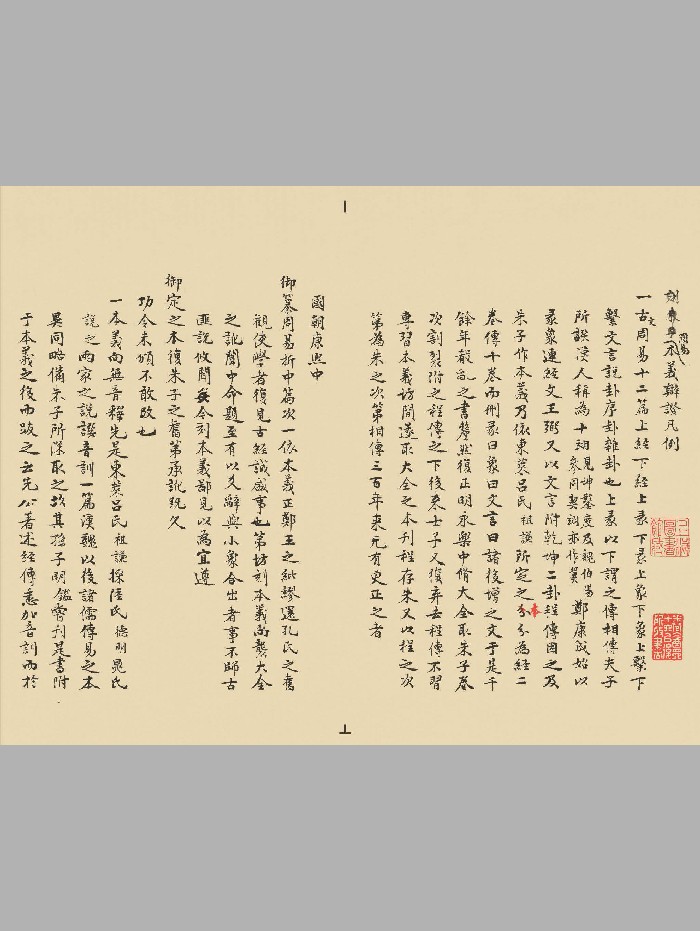 刻周易本義辯證凡例
一古文周易十二篇上經下經上彖下彖上象下象上繫下
繫文言說卦序卦雜卦也上彖以下謂之傳相傳夫子
所譔漢人稱為十翊見坤鑿度及魏伯陽參同契翊亦作翼鄭康成始以
彖象連經文王弼又以文言附乾坤二卦程傳因之及
朱子作本義乃依東萊呂氏祖謙所定之本分為經二
卷傳十卷而刪彖曰象曰文言曰諸後增之文于是千
餘年殽亂之書釐然復正明永樂中脩大全取朱子卷
次割裂附之程傳之下後來士子又復弃去程傳不習
專習本義坊間遂取大全之本刊程存朱又以程之次
第為朱之次第相傳三百年來无有更正之者
國朝康熙中
御纂周易折中篇次一依本義正鄭王之紕繆還孔氏之舊
觀使學者復見古經誠盛事也第坊刻本義尚襲大全
之訛闈中命題至有以爻辭與小象合出者事不師古
匪說攸聞矣今刻本義鄙見以為宜遵
御定之本復朱子之舊第承訛既久
功令未頒不敢改也
一本義向無音釋先是東萊呂氏祖謙採陸氏德明晁氏
說之兩家之說譔音訓一篇漢魏以後諸儒傳易之本
異同略備朱子所深取之故其孫子明鑑嘗刊是書附
于本義之後而跋之云先公著述經傳悉加音訓而於